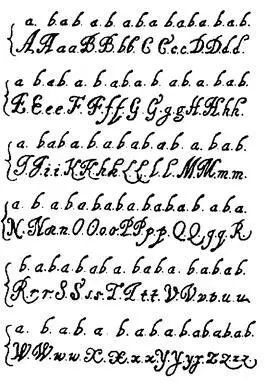 a. b.a.b. a.b.a.b.a.b.a.b.a.b.
A.A.a.a.B.B.b.b.C.C.c.c.D.D.d.d.
a. b.a.b. a. b.a.b. a.b. a.b.a.b.
E.E.e.e.F.F.f.f.G.G.g.g.H.H.h.h.
a. b.a.b.a. b.a.b.a.b.a.b. a. b.a.b.
I.I.i.i.K.K.k.k.L.L.l.l.M.M.m.m.
a. b. a.b.a.b.a.b.a.b.a.b.a.b. a.b.a.
N.N.n.n.O.O.o.o.P.P.p.p.Q.Q.q.q.R.
b. a.b.a.b.a.b. a. b.a.b.a. b.a.b.a.b.
R.r.r.S.S.s.s.T.T.t.t.V.V.v.v.u.u.
a. b. a.b. a. b. a.b.a.b.a.b.a.b.a.b.
W.W.w.w.X.X.x.x.Y.Y.y.y.Z.Z.z.z.